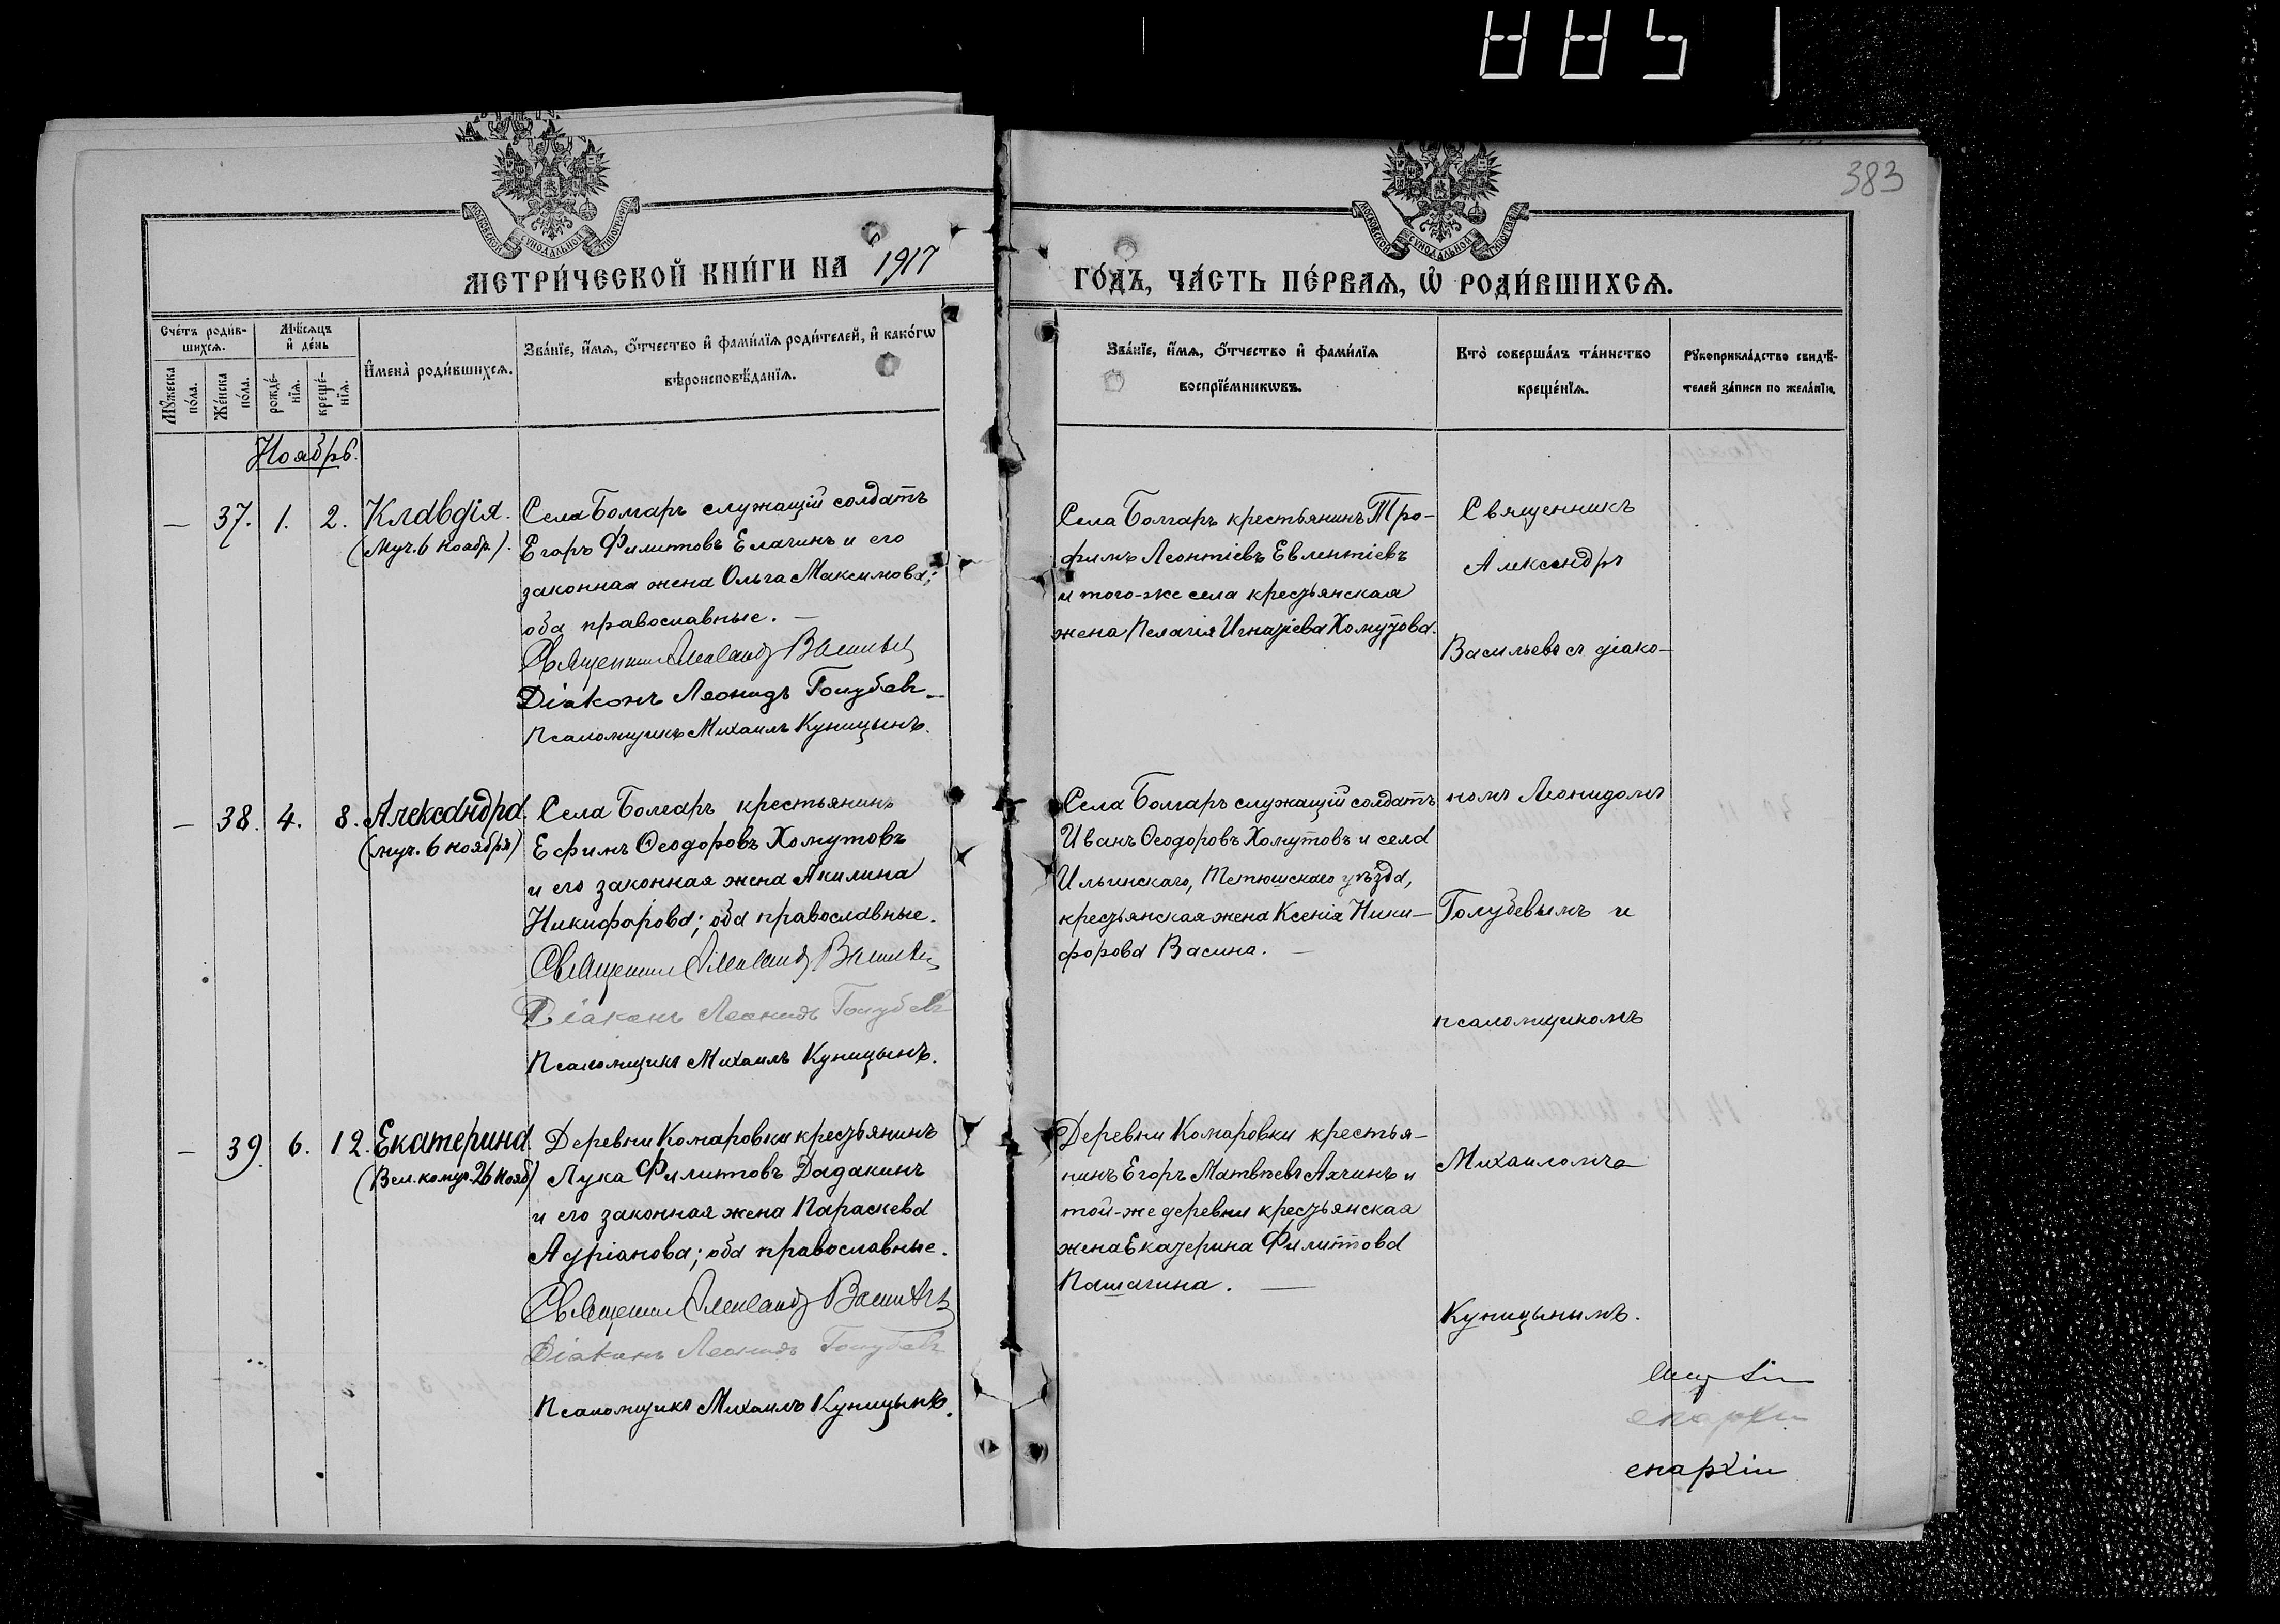 885
383
МОСКОВСКОЙ СѴНОДАЛЬНОЙ ТИПОГРАФІИ
МОСКОВСКОЙ СѴНОДАЛЬНОЙ ТИПОГРАФІИ
МЕТРИ́ЧЕСКОЙ КНИ́ГИ НА 1917
ГО́ДЪ, ЧА́СТЬ ПЕ́РВАЯ, Ѡ҆ РОДИ́ВШИХСЯ.
Сче́тъ роди́в-
шихся.
Мѣ́сяцъ
и҆ де́нь
Мꙋ́жеска
по́ла.
Же́нска
по́ла.
рожде́-
нїя.
креще́-
нїя.
И҆мена̀ роди́вшихся.
Зва́нїе, и҆́мя, ѻ҆́тчество и҆ фами́лїя роди́телей, и҆ како́гѡ
вѣроисповѣ́данїя.
Зва́нїе, и҆́мя, ѻ҆́тчество и҆ фами́лїя
воспрїе́мникѡвъ.
Кто̀ соверша́лъ та́инство
креще́нїя.
Рꙋкоприкла́дство свидѣ́-
телей за́писи по жела́нїю.
Ноябрь.
— 37. 1. 2. Клавдія.
(Муч. 6 ноябр.).
Села Болгаръ служащій солдатъ
Егоръ Филипповъ Елагинъ и его
законная жена Ольга Максимова;
оба православные. —
Священникъ Александръ Васильевъ
Діаконъ Леонидъ Голубевъ —
Псаломщикъ Михаилъ Куницынъ.
Села Болгаръ крестьянинъ Тро-
фимъ Леонтіевъ Евлентіевъ
и того-же села крестьянская
жена Пелагія Игнатіева Хомутова.
Священникъ
Александръ
Васильевъ съ діако-
— 38. 4. 8. Александра.
(муч. 6 ноября)
Села Болгаръ крестьянинъ
Ефимъ Ѳеодоровъ Хомутовъ
и его законная жена Акилина
Никифорова; оба православные.
Священникъ Александръ Васильевъ
Діаконъ Леонидъ Голубевъ
Псаломщикъ Михаилъ Куницынъ.
Села Болгаръ служащій солдатъ
Иванъ Ѳеодоровъ Хомутовъ и села
Ильинскаго, Тетюшскаго уѣзда,
крестьянская жена Ксенія Ники-
форова Васина. —
номъ Леонидомъ
Голубевымъ и
псаломщикомъ
— 39. 6. 12. Екатерина.
(Вел. комуч. 26 нояб)
Деревни Комаровки крестьянинъ
Лука Филипповъ Дадакинъ
и его законная жена Параскева
Адріанова; оба православные.
Священникъ Александръ Васильевъ
Діаконъ Леонидъ Голубевъ
Псаломщикъ Михаилъ Куницынъ.
Деревни Комаровки крестья-
нинъ Егоръ Матвѣевъ Аячинъ и
той-же деревни крестьянская
жена Екатерина Филиппова
Пашагина. —
Михаиломъ
Куницынымъ.
епархіи
епархіи